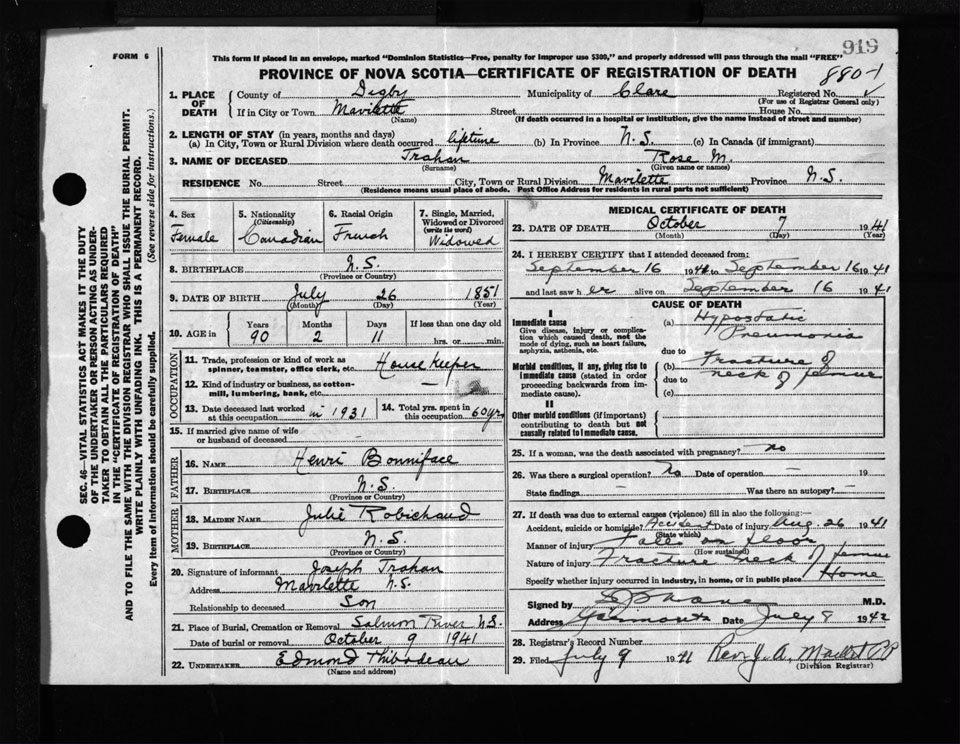 919
FORM 6
This form if placed in an envelope, marked "Dominion Statistics—Free, penalty for improper use $300," and properly addressed will pass through the mail "FREE"
PROVINCE OF NOVA SCOTIA—CERTIFICATE OF REGISTRATION OF DEATH
880-1
SEC. 46—VITAL STATISTICS ACT MAKES IT THE DUTY
OF THE UNDERTAKER OR PERSON ACTING AS UNDER-
TAKER TO OBTAIN ALL THE PARTICULARS REQUIRED
IN THE "CERTIFICATE OF REGISTRATION OF DEATH"
AND TO FILE THE SAME WITH THE DIVISION REGISTRAR WHO SHALL ISSUE THE BURIAL PERMIT.
WRITE PLAINLY WITH UNFADING INK. THIS IS A PERMANENT RECORD.
Every item of information should be carefully supplied. (See reverse side for instructions.)
1. PLACE OF DEATH
County of Digby Municipality of Clare Registered No.
(For use of Registrar General only)
If in City or Town Mavilette Street House No.
(Name) (If death occurred in a hospital or institution, give the name instead of street and number)
2. LENGTH OF STAY (in years, months and days)
(a) In City, Town or Rural Division where death occurred lifetime (b) In Province N.S. (c) In Canada (if immigrant)
3. NAME OF DECEASED Trahan Rose M.
(Surname) (Given name or names)
RESIDENCE No. Street City, Town or Rural Division Mavilette Province N.S.
(Residence means usual place of abode. Post Office Address for residents in rural parts not sufficient)
4. Sex
Female
5. Nationality
(Citizenship)
Canadian
6. Racial Origin
French
7. Single, Married,
Widowed or Divorced
(write the word)
Widowed
8. BIRTHPLACE N.S.
(Province or Country)
9. DATE OF BIRTH July 26 1851
(Month) (Day) (Year)
10. AGE in
Years Months Days If less than one day old
90 2 11 hrs. or min.
OCCUPATION
11. Trade, profession or kind of work as
spinner, teamster, office clerk, etc. House Keeper
12. Kind of industry or business, as cotton-
mill, lumbering, bank, etc. —
13. Date deceased last worked
at this occupation in 1931
14. Total yrs. spent in
this occupation 60 yr
15. If married give name of wife
or husband of deceased —
FATHER
16. NAME Henri Bonniface
17. BIRTHPLACE N.S.
(Province or Country)
MOTHER
18. MAIDEN NAME Julie Robichaud
19. BIRTHPLACE N.S.
(Province or Country)
20. Signature of informant Joseph Trahan
Address Mavilette N.S.
Relationship to deceased Son
21. Place of Burial, Cremation or Removal Salmon River N.S.
Date of burial or removal October 9 1941
22. UNDERTAKER Edmond Thibodeau
(Name and address)
MEDICAL CERTIFICATE OF DEATH
23. DATE OF DEATH October 7 1941
(Month) (Day) (Year)
24. I HEREBY CERTIFY that I attended deceased from:
September 16 1941 to September 16 1941
and last saw her alive on September 16 1941
CAUSE OF DEATH
I
Immediate cause
Give disease, injury or complica-
tion which caused death, not the
mode of dying, such as heart failure,
asphyxia, asthenia, etc.
(a) Hypostatic
Pneumonia
due to
Morbid conditions, if any, giving rise to
immediate cause (stated in order
proceeding backwards from im-
mediate cause).
(b) Fracture of
due to neck of femur
(c)
II
Other morbid conditions (if important)
contributing to death but not
causally related to immediate cause.
25. If a woman, was the death associated with pregnancy? no
26. Was there a surgical operation? No Date of operation — 19
State findings — Was there an autopsy? —
27. If death was due to external causes (violence) fill in also the following:—
Accident, suicide or homicide? Accident Date of injury Aug. 26 1941
(State which)
Manner of injury Fall on floor
(How sustained)
Nature of injury Fracture neck of femur
Specify whether injury occurred in industry, in home, or in public place Home
Signed by M.D.
Address Yarmouth Date July 8 1942
28. Registrar's Record Number
29. Filed July 9 1941 Rev. J. A.
(Division Registrar)